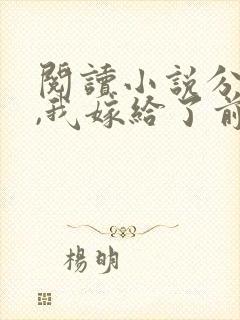 閱讀小說分
,我嫁給了前
楊明